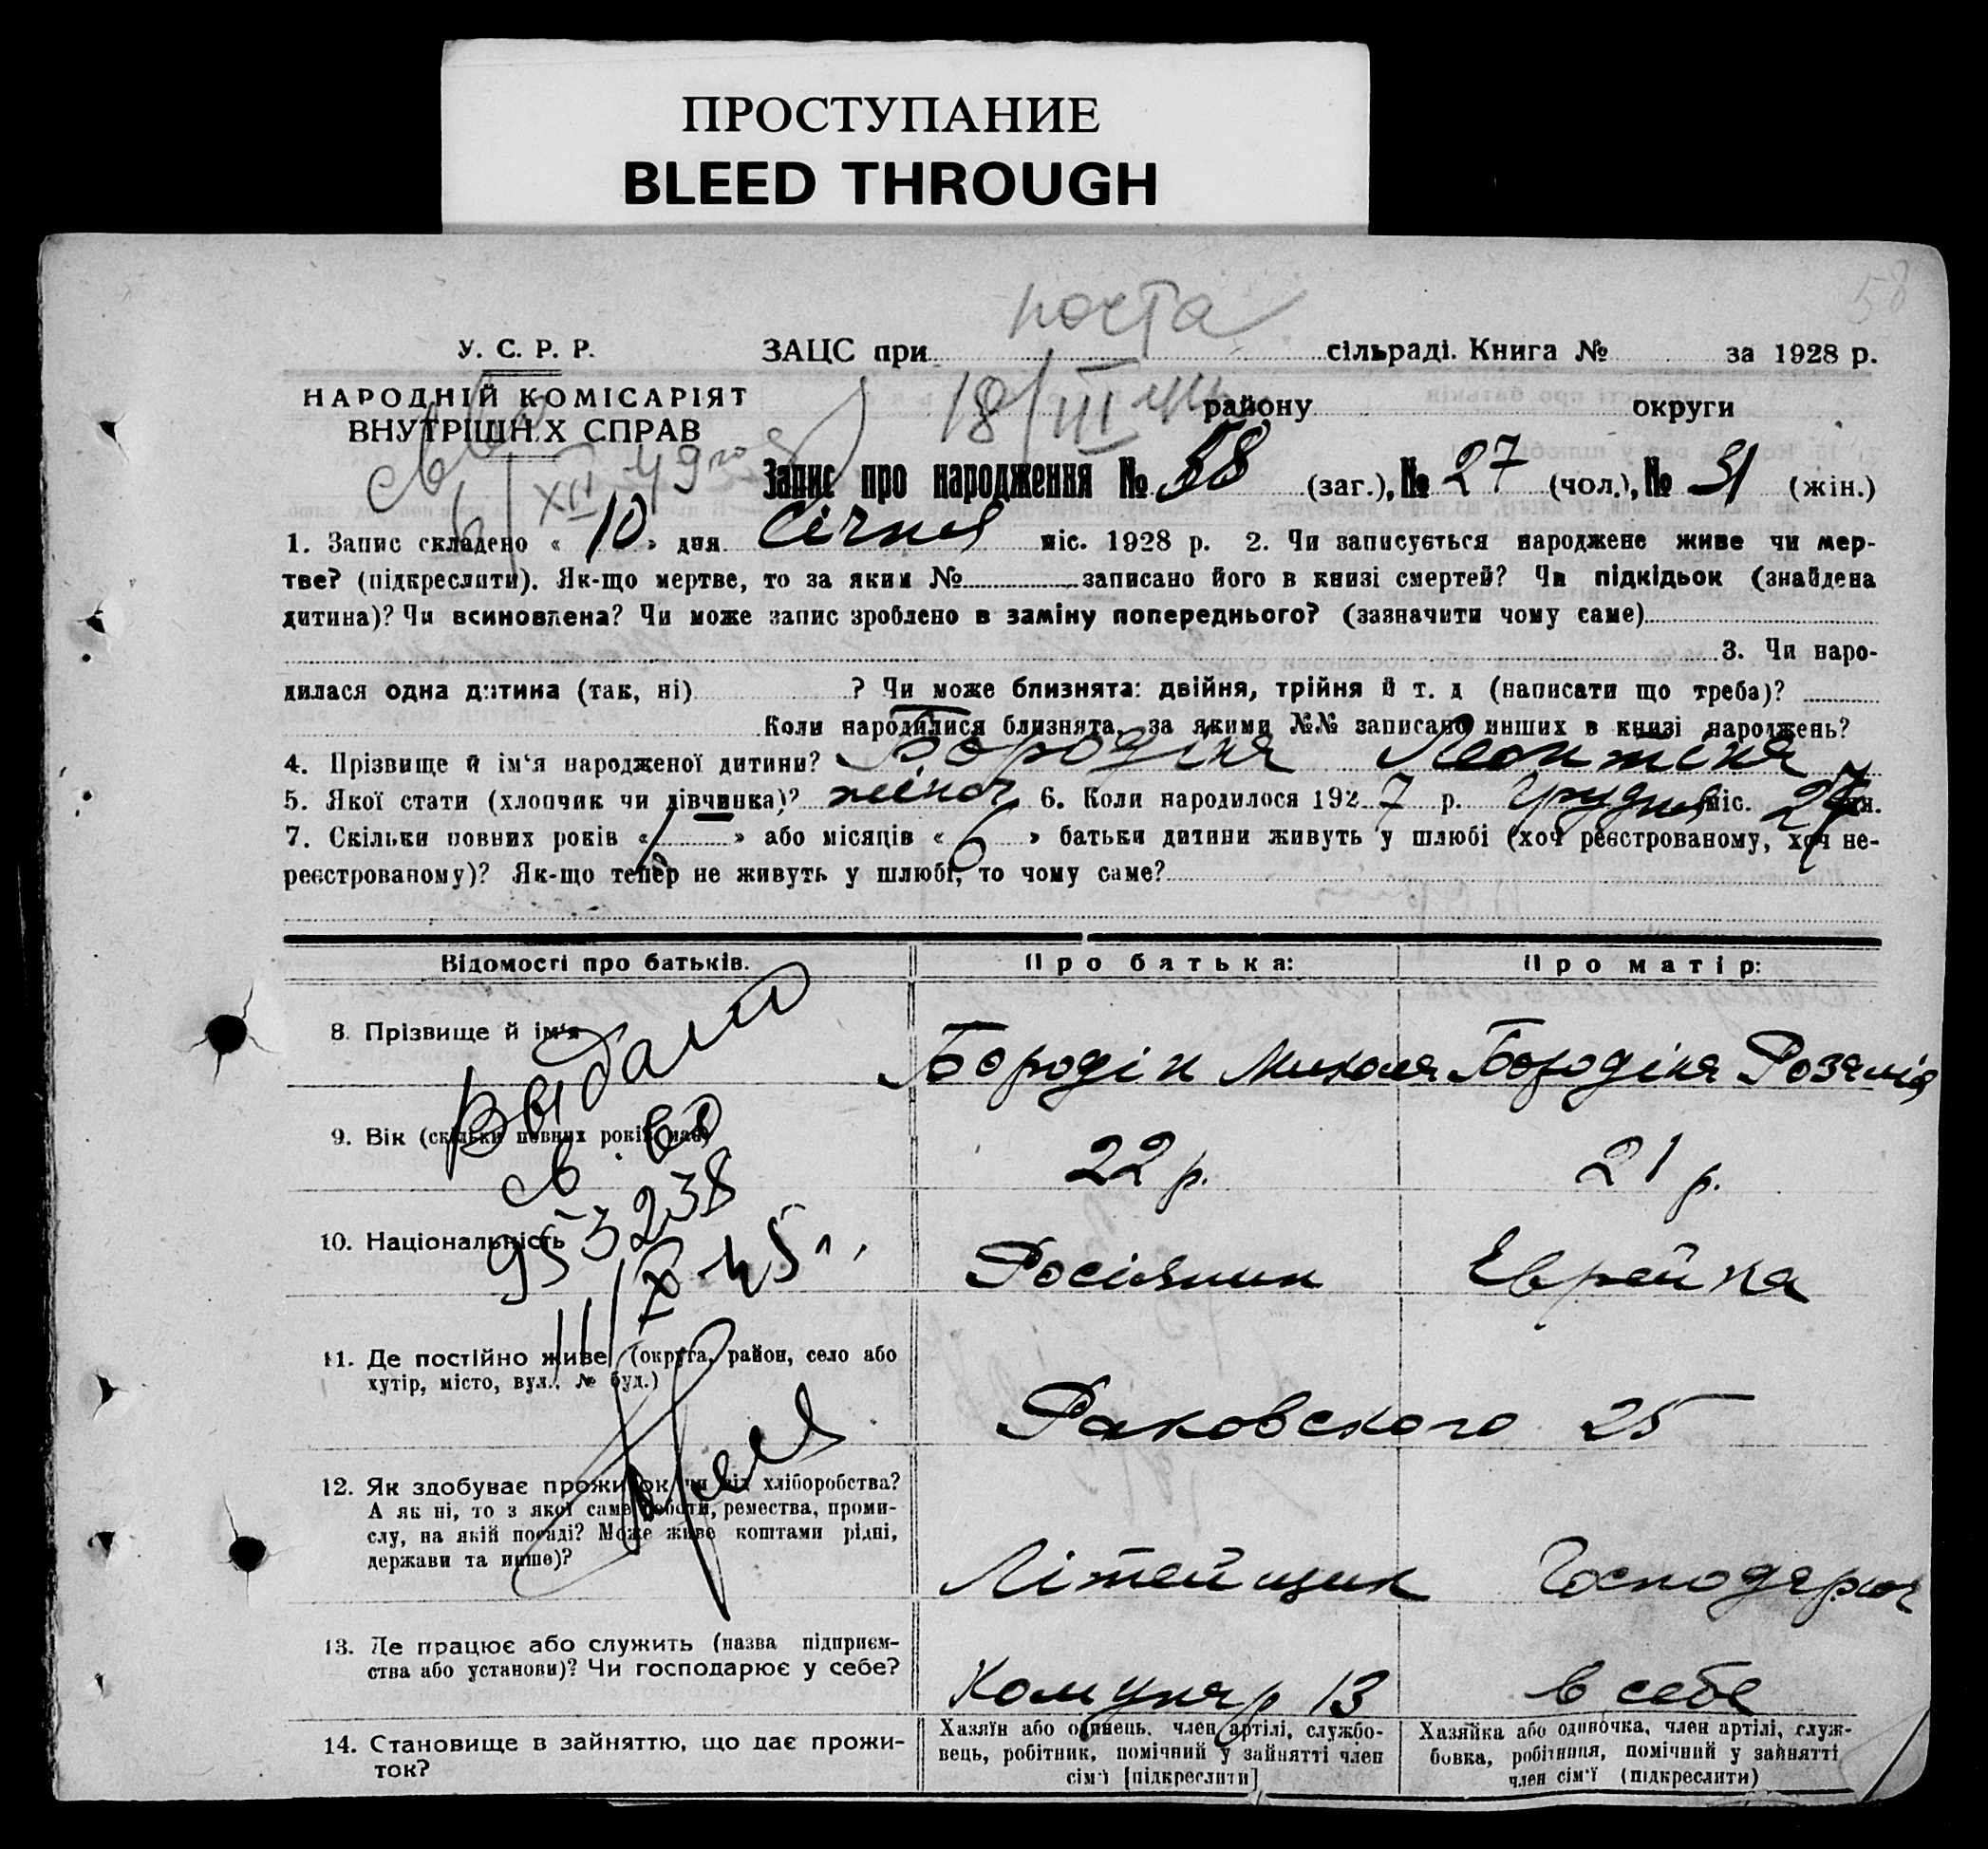 ПРОСТУПАНИЕ
BLEED THROUGH
58
почта
У. С. Р. Р.
ЗАЦС при сільраді. Книга № за 1928 р.
НАРОДНІЙ КОМІСАРІЯТ
ВНУТРІШН.Х СПРАВ
18/III
району округи
св
XII 49
Запис про народження № 58 (заг.), № 27 (чол.), № 31 (жін.)
1. Запис складено « 10 » дня Січня міс. 1928 р. 2. Чи записується народжене живе чи мер-
тве? (підкреслити). Як-що мертве, то за яким № записано його в книзі смертей? Чи підкідьок (знайдена
дитина)? Чи всиновлена? Чи може запис зроблено в заміну попереднього? (зазначити чому саме)
3. Чи наро-
дилася одна дитина (так, ні) ? Чи може близнята: двійня, трійня й т. д (написати що треба)?
Коли народилися близнята, за якими №№ записано инших в книзі народжень?
4. Прізвище й ім'я народженої дитини? Бородіна Леонтіна
5. Якої стати (хлопчик чи дівчинка)? жіноч 6. Коли народилося 1927 р. Грудня міс. дн.
7. Скільки повних років « 1 » або місяців « 6 » батьки дитини живуть у шлюбі (хоч реєстрованому, хоч не-
реєстрованому)? Як-що тепер не живуть у шлюбі, то чому саме?
Відомості про батьків. Про батька: Про матір:
8. Прізвище й ім'я Бородін Микола Бородіна Розалія
Выдано
9. Вік (скільки повних років має) 22 р. 21 р.
св. во
953238
10. Національність Росіянин Еврейка
11/X 45
11. Де постійно живе (округа, район, село або
хутір, місто, вул., № буд.)
Раковского 25
12. Як здобуває прожиток чи від хліборобства?
А як ні, то з якої саме роботи, ремества, проми-
слу, на якій посаді? Може живе коштами рідні,
держави та инше)?
Літейщик Господарює
13. Де працює або служить (назва підприєм-
ства або установи)? Чи господарює у себе?
Комунар 13 в себе
14. Становище в зайняттю, що дає прожи-
ток?
Хазяїн або одинець, член артілі, службо-
вець, робітник, помічний у зайнятті член
сім'ї [підкреслити]
Хазяйка або одиночка, член артілі, служ-
бовка, робітниця, помічний у зайнятті
член сім'ї (підкреслити)